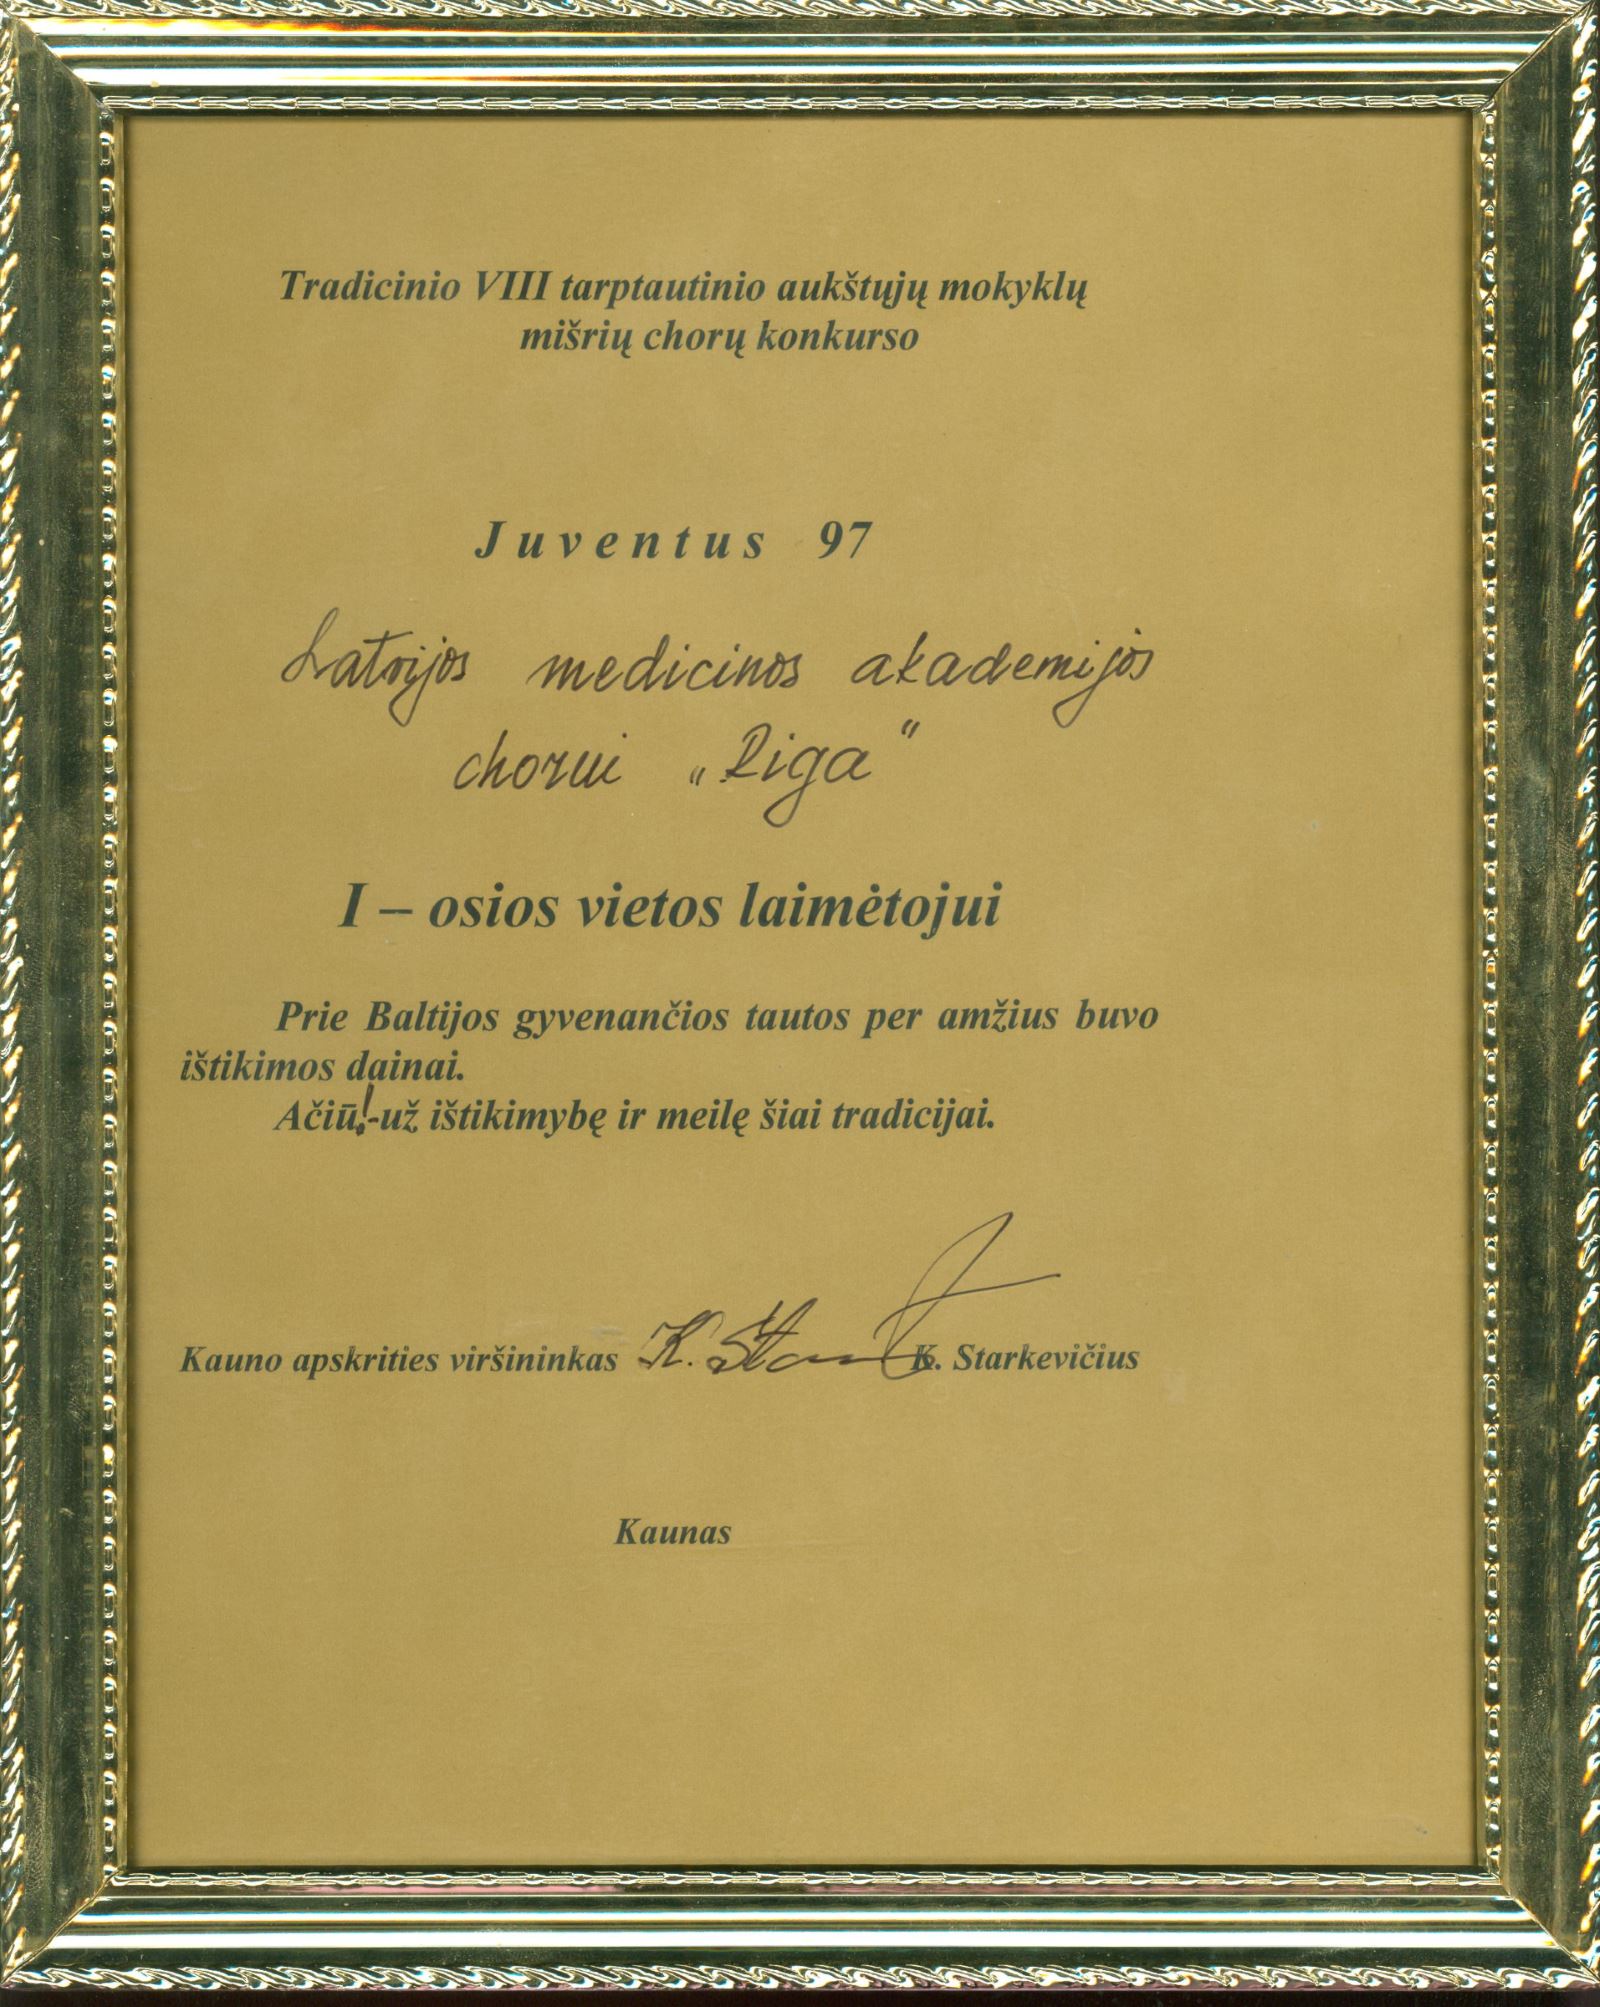 Tradicinio VIII tarptautinio aukštųjų mokyklų
mišrių chorų konkurso
Juventus 97
Latvijos medicinos akademijos
chorui „Riga“
I – osios vietos laimėtojui
Prie Baltijos gyvenančios tautos per amžius buvo
ištikimos dainai.
Ačiū!-už ištikimybę ir meilę šiai tradicijai.
Kauno apskrities viršininkas K. Starkevičius
Kaunas